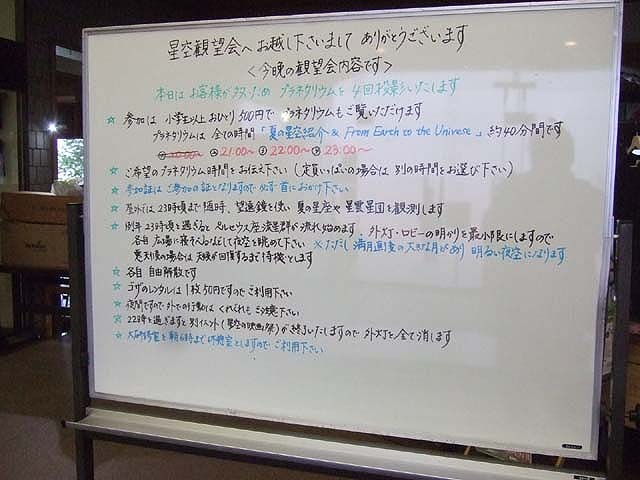 星空観望会へお越し下さいまして ありがとうございます
<今晩の観望会内容です>
本日は お客様が多いため プラネタリウムを 4回投影いたします
☆ 参加は 小学生以上 おひとり 500円で プラネタリウムもご覧いただけます
プラネタリウムは 全ての時間「夏の星空紹介 & From Earth to the Universe」約40分間です
① 20:00~ ② 21:00~ ③ 22:00~ ④ 23:00~
☆ ご希望の プラネタリウム時間を お伝え下さい (定員いっぱいの場合は 別の時間を お選び下さい)
☆ 参加証は ご参加の証となりますので 必ず首におかけ下さい
☆ 屋外では 23時頃まで 随時、望遠鏡を使い 夏の星座や 星雲星団を 観測します
☆ 例年 23時頃を過ぎると ペルセウス座流星群が 流れ始めます。外灯・ロビーの明かりを最小限にしますので
各自 広場に寝そべるなどして夜空を眺めて下さい ※ただし 満月直後の大きな月があり 明るい夜空になります
曇天候の場合は 天候が回復するまで待機とします
☆ 各自 自由解散です
☆ ゴザのレンタルは 1枚50円ですので ご利用下さい
☆ 夜間ですので 外での行動は くれぐれも ご注意下さい
☆ 22時を過ぎますと 別イベント(星空の映画祭)が終了いたしますので 外灯を全て消します
☆ 大研修室を 朝6時まで 休憩室としますので ご利用下さい